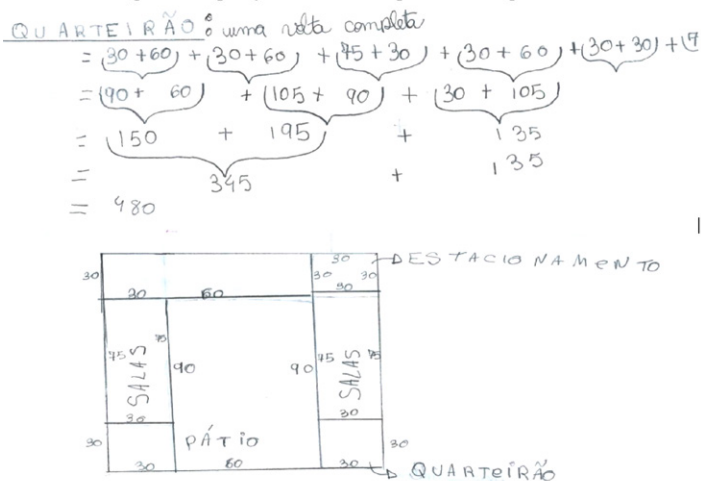 QUARTEIRÃO: uma volta completa
= (30+60) + (30+60) + (75+30) + (30+60) + (30+30) + (7
= (90+ 60) + (105+ 90) + (30 + 105)
= 150 + 195 + 135
= 345 + 135
= 480
30 DESTACIONAMENTO
30 30 30
30 60 30
75 SALAS 75 90 90 75 SALAS 75
30 30
30 PÁTIO 30
30 60 30 QUARTEIRÃO